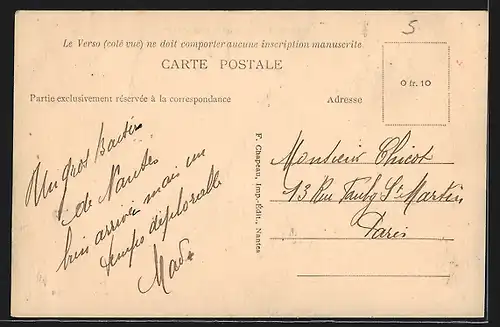 5
Le Verso (coté vue) ne doit comporter aucune inscription manuscrite
CARTE POSTALE
0 fr. 10
Partie exclusivement réservée à la correspondance
Adresse
Un gros baiser
de Nantes
bien arrivée mais un
temps déplorable
Mad
F. Chapeau, Imp.-Édit., Nantes
Monsieur Chicot
13 Rue Faubg St Martin
Paris